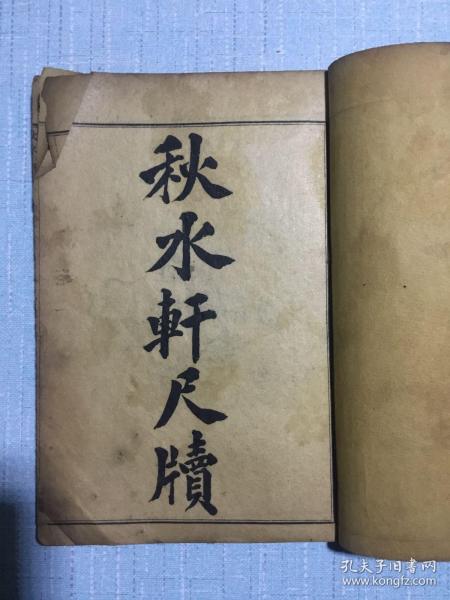 秋水軒尺牘
孔夫子旧书网
www.kongfz.com